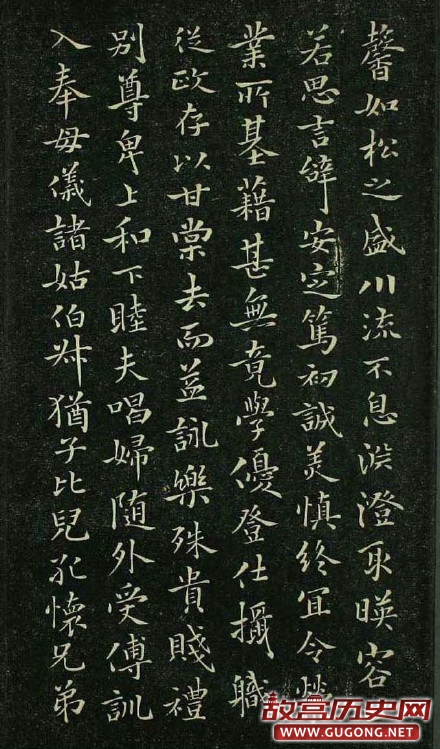 馨如松之盛川流不息渊澄取暎容
若思言辝安定篤初誠美慎終宜令榮
業所基藉甚無竟學優登仕攝職
從政存以甘棠去而益詠樂殊貴賤禮
别尊卑上和下睦夫唱婦随外受傅訓
入奉母儀諸姑伯叔猶子比兒孔懷兄弟
故宫历史网
WWW.GUGONG.NET